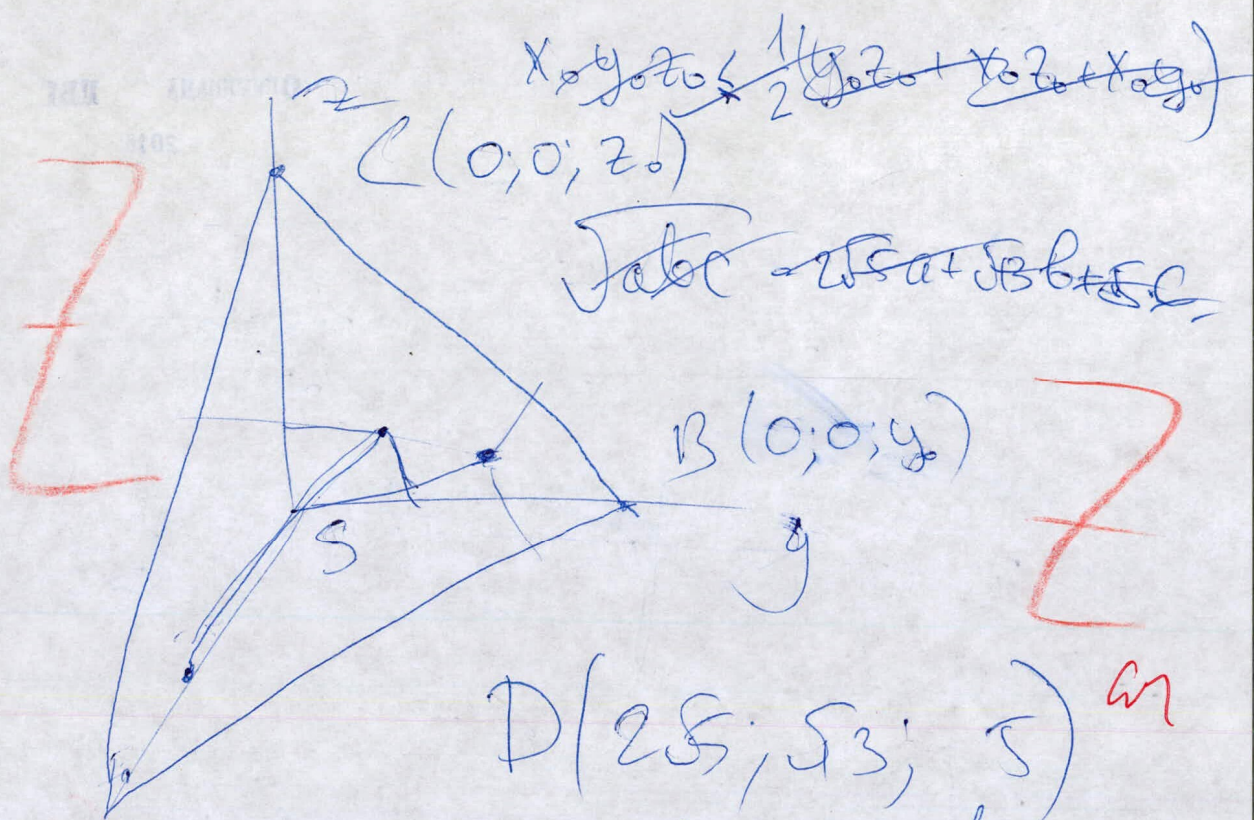 x₀y₀z₀ ≤ 1/2(y₀z₀ + x₀z₀ + x₀y₀)
z
C(0;0;z₀)
√abc = 2√5a + √3b + √5c
B(0;0;y₀)
S
y
D(2√5; √3; 5)
Z
Z